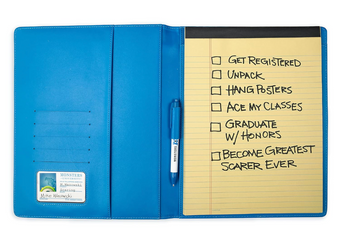 GET REGISTERED
UNPACK
HANG POSTERS
ACE MY CLASSES
GRADUATE
W/ HONORS
BECOME GREATEST
SCARER EVER
MONSTERS